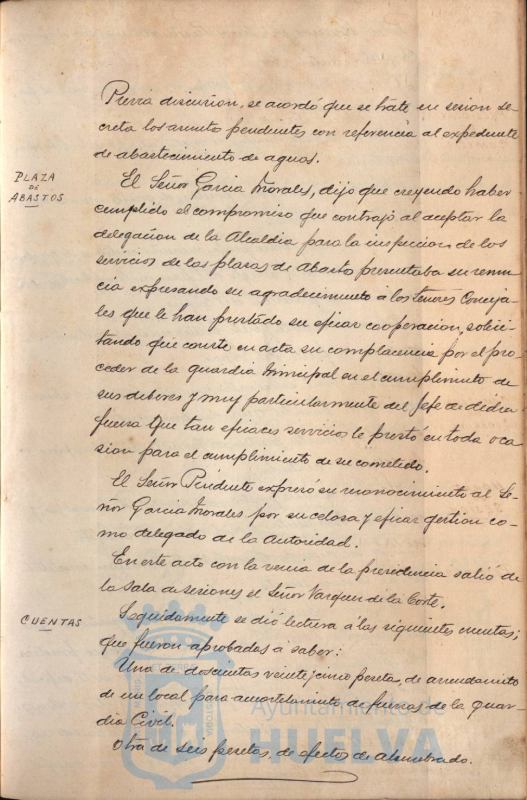 Previa discusion, se acordó que se trate en sesion se-
creta los asunto pendientes con referencia al expediente
de abastecimiento de aguas.
PLAZA
DE
ABASTOS
El Señor Garcia Morales, dijo que creyendo haber
cumplido el compromiso que contrajó al aceptar la
delegacion de la Alcaldia para la inspeccion de los
servicios de las plazas de Abasto presentaba su renun-
cia expresando su agradecimiento á los señores Conceja-
les que le han prestado su eficaz cooperacion, solici-
tando que conste en acta su complacencia por el pro-
ceder de la guardia Municipal en el cumplimiento de
sus deberes y muy particularmente del Jefe de dicha
fuerza que tan eficaces servicios le prestó en toda oca-
sion para el cumplimiento de su cometido.
El Señor Presidente expresó su reconocimiento al Se-
ñor Garcia Morales por su celosa y eficaz gestion co-
mo delegado de la Autoridad.
En este acto con la venia de la presidencia salió de
la Sala de sesiones el Señor Vazquez de la Corte.
CUENTAS
Seguidamente se dió lectura á las siguientes cuentas;
que fueron aprobadas á saber:
Una de doscientas veinte y cinco pesetas, de arrendamiento
de un local para acuartelamiento de fuerzas de la guar-
dia Civil.
Otra de seis pesetas, de efectos de alumbrado.
Ayuntamiento de
HUELVA